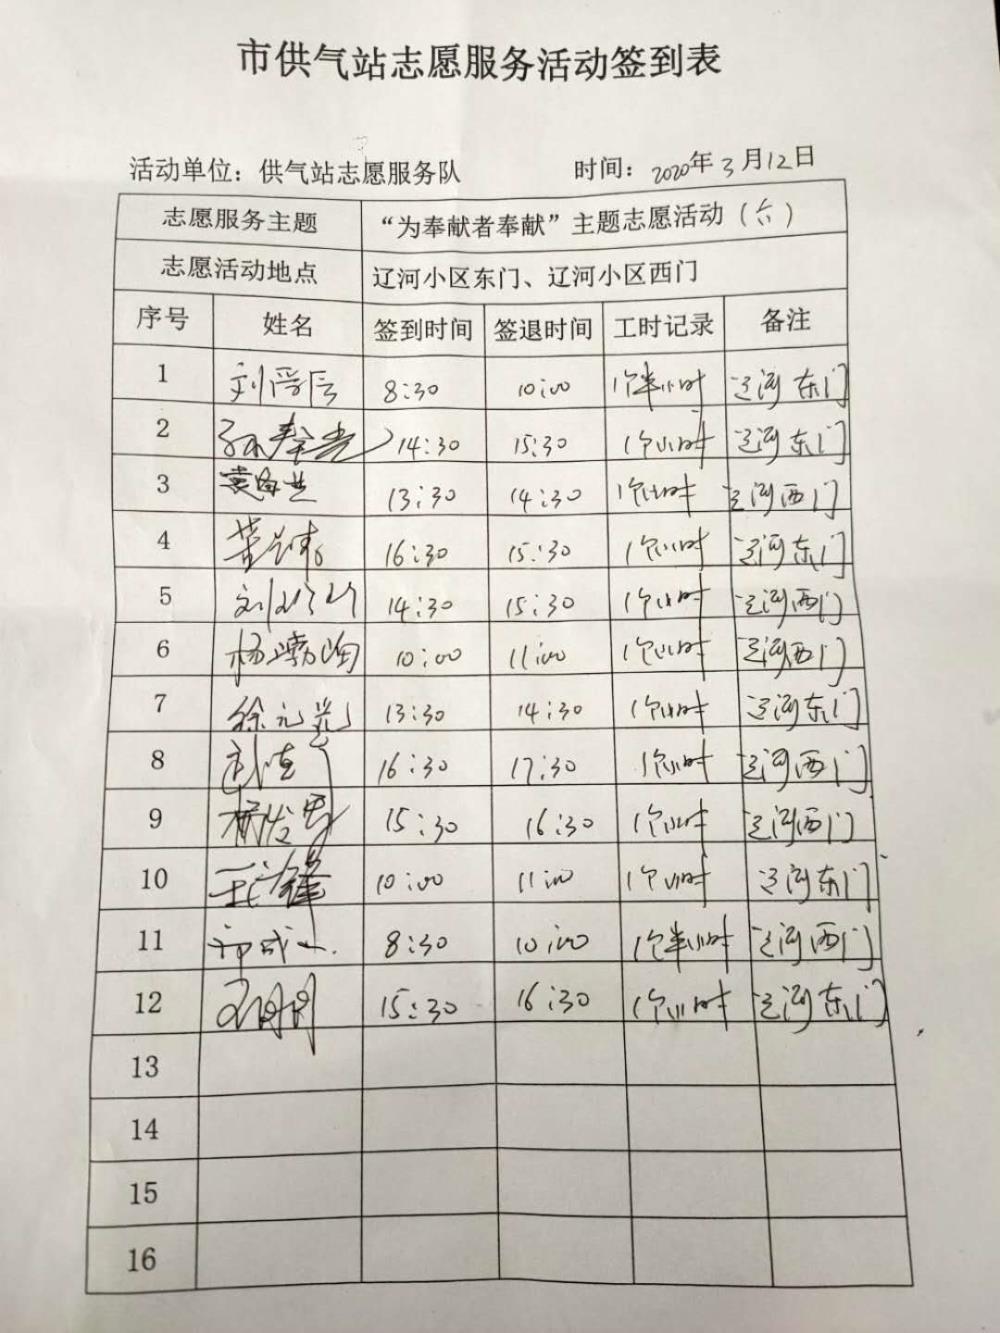 市供气站志愿服务活动签到表
活动单位：供气站志愿服务队 时间：2020年3月12日
志愿服务主题 “为奉献者奉献”主题志愿活动（六）
志愿活动地点 辽河小区东门、辽河小区西门
序号 姓名 签到时间 签退时间 工时记录 备注
1 8:30 10:00 1个半小时 辽河东门
2 14:30 15:30 1个小时 辽河东门
3 13:30 14:30 1个小时 辽河西门
4 16:30 15:30 1个小时 辽河东门
5 14:30 15:30 1个小时 辽河西门
6 10:00 11:00 1个小时 辽河西门
7 13:30 14:30 1个小时 辽河东门
8 16:30 17:30 1个小时 辽河西门
9 15:30 16:30 1个小时 辽河西门
10 10:00 11:00 1个小时 辽河东门
11 8:30 10:00 1个半小时 辽河西门
12 15:30 16:30 1个小时 辽河东门
13
14
15
16